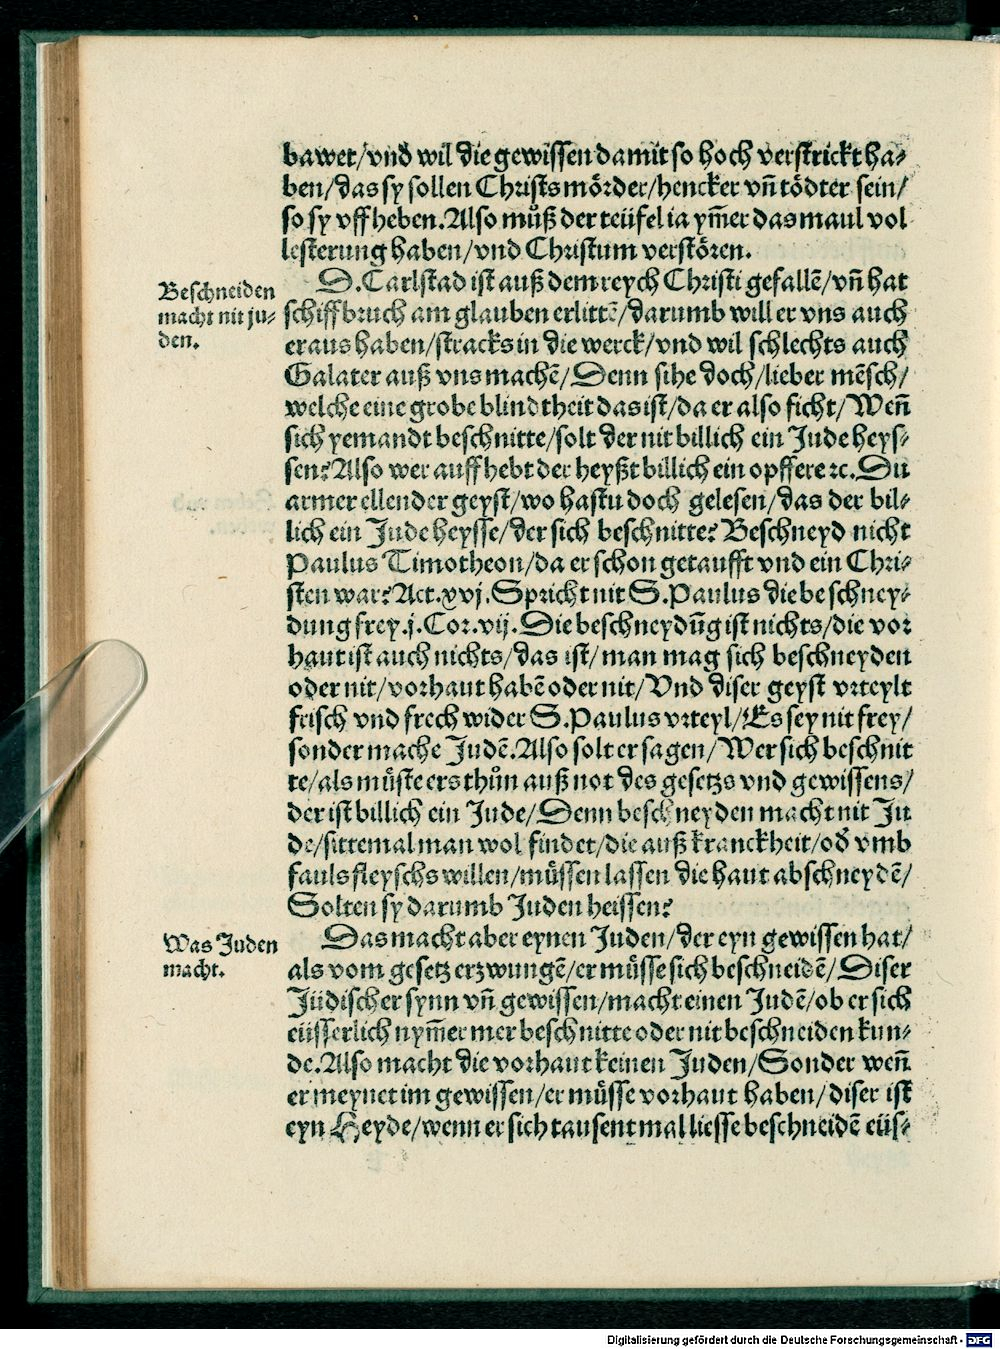 bawet/vnd wil die gewissen damit so hoch verstrickt ha-
ben/das sy sollen Christs mörder/hencker vñ tödter sein/
so sy vff heben. Also muͦß der teüfel ia ym̃er das maul vol
lesterung haben/vnd Christum verstören.
Beschneiden
macht nit ju-
den.
D. Carlstad ist auß dem reych Christi gefallẽ/vñ hat
schiffbruch am glauben erlittẽ/darumb will er vns auch
eraus haben/stracks in die werck/vnd wil schlechts auch
Galater auß vns machẽ/Denn sihe doch/lieber mẽsch/
welche eine grobe blindtheit das ist/da er also ficht/Weñ
sich yemandt beschnitte/solt der nit billich ein Jude heys-
sen? Also wer auffhebt der heyßt billich ein opfferer ꝛc. Du
armer ellender geyst/wo hastu doch gelesen/das der bil-
lich ein Jude heysse/der sich beschnitte? Beschneyd nicht
Paulus Timotheon/da er schon getaufft vnd ein Chri-
sten war? Act. xvj. Spricht nit S. Paulus die beschney-
dung frey. j. Cor. vij. Die beschneydũg ist nichts/die vor
haut ist auch nichts/das ist/man mag sich beschneyden
oder nit/vorhaut habẽ oder nit/Vnd diser geyst vrteylt
frisch vnd frech wider S. Paulus vrteyl/Es sey nit frey/
sonder mache Judẽ. Also solt er sagen/Wer sich beschnit
te/als müste ers thuͦn auß not des gesetzs vnd gewissens/
der ist billich ein Jude/Denn beschneyden macht nit Ju
de/sittemal man wol findet/die auß kranckheit/od̕ vmb
fauls fleyschs willen/müssen lassen die haut abschneydẽ/
Solten sy darumb Juden heissen?
Was Juden
macht.
Das macht aber eynen Juden/der eyn gewissen hat/
als vom gesetz erzwungẽ/er müsse sich beschneidẽ/Diser
Jüdischer synn vñ gewissen/macht einen Judẽ/ob er sich
eüsserlich nym̃er mer beschnitte oder nit beschneiden kun-
de. Also macht die vorhaut keinen Juden/Sonder weñ
er meynet im gewissen/er müsse vorhaut haben/diser ist
eyn Heyde/wenn er sich tausent mal liesse beschneidẽ eüs-
Digitalisierung gefördert durch die Deutsche Forschungsgemeinschaft - DFG